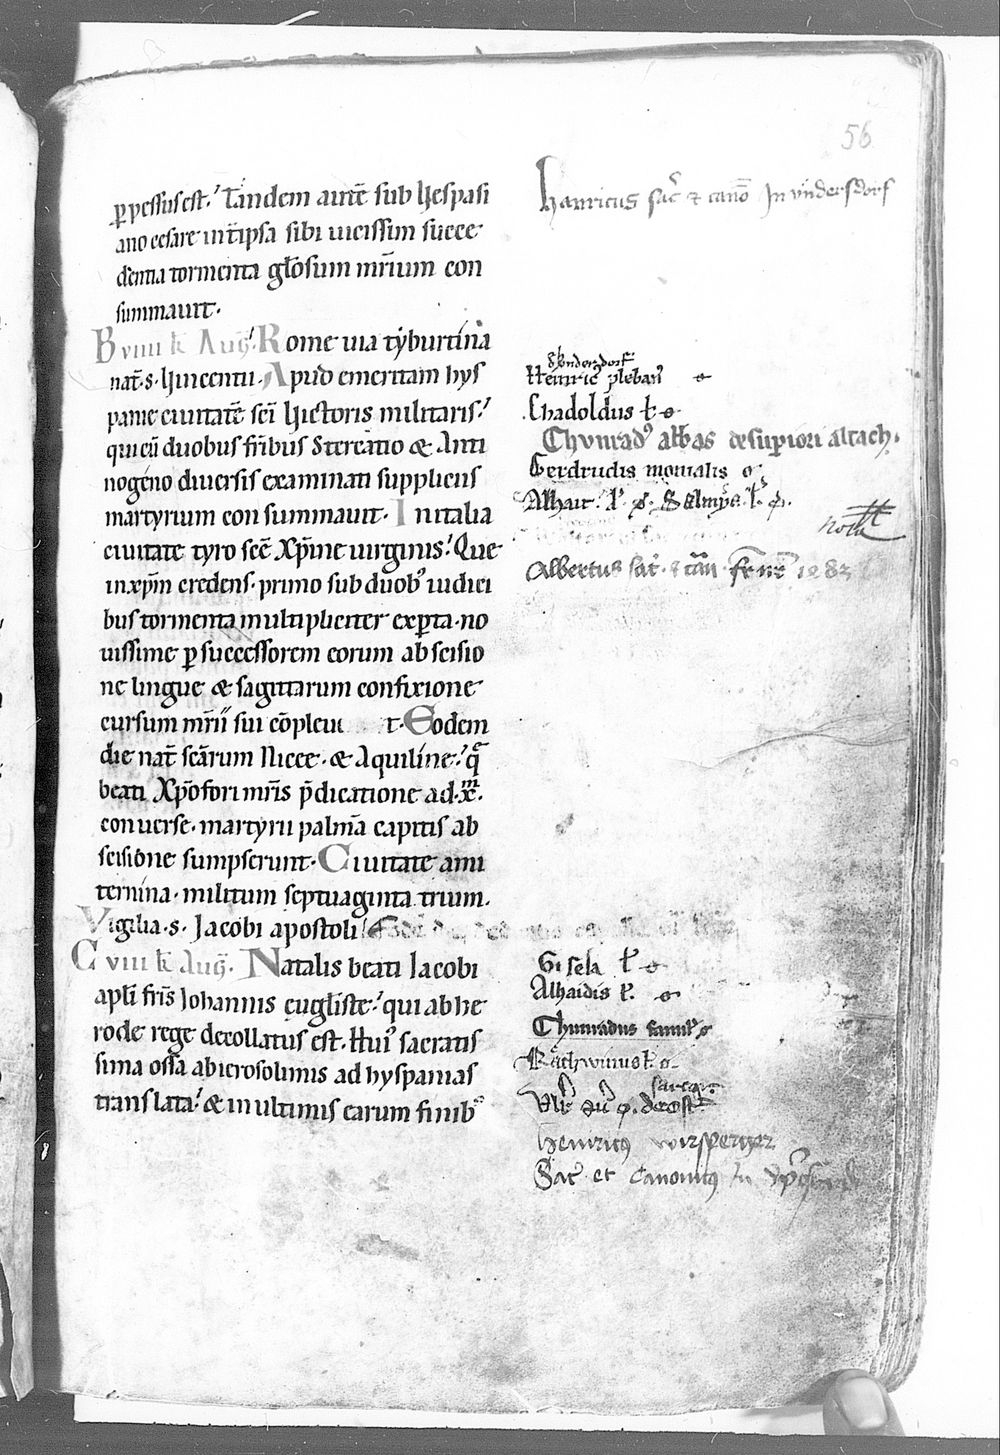 56
ꝑpessus est. Tandem autē sub Vespasi
ano cesare in t̄ipsa sibi uicissim succe
dentia tormenta gl̄osum mr̄ium con
summauit.
B viiii k̄ Auḡ. Rome uia tyburtina
nat̄. s. Vincentii. Apud emeritam hys
panie ciuitatē sc̄i Victoris militaris.
qui cū duobus fr̄ibus Stercatio & Anti
nogeno diuersis examinati suppliciis
martyrium consummauit. In italia
ciuitate tyro sc̄e Xp̄ine uirginis. Que
in xp̄m credens. primo sub duobꝰ iudici
bus tormenta multipliciter exꝑta. no
uissime ꝑ successorem eorum abscisio
ne lingue & sagittarum confixione
cursum mr̄ii sui cōpleui t. Eodem
die nat̄ sc̄arum Nicee. & Aquiline. q̄
beati Xp̄ofori mr̄is p̄dicatione ad xp̄m
conuerse. martyrii palmā capitis ab
scisione sumpserunt. Ciuitate ami
ternina. militum septuaginta trium.
Vigilia. s. Jacobi apostoli.
C viii k̄ Auḡ. Natalis beati Jacobi
apl̄i fr̄is Johannis euḡliste. qui ab he
rode rege decollatus est. Huiꝰ sacratis
sima ossa ab ierosolimis ad hyspanias
translata. & in ultimis earum finibꝰ
Hainricus sac̄ et cano̅ In vndersdorf
vnderzdorf
Heinric̄ pleban̄
Chadoldus l̄. o.
Chunradꝰ abbas de supiori altach.
Gerdrudis monialis o.
Alhait. l̄. o.
Albertus sac̄. et can̄
Gisela l̄ o
Alhaidis l̄. o
Chunradus
l̄. o.
Heinricꝰ wirsperger
Sac̄ et canonicꝰ In